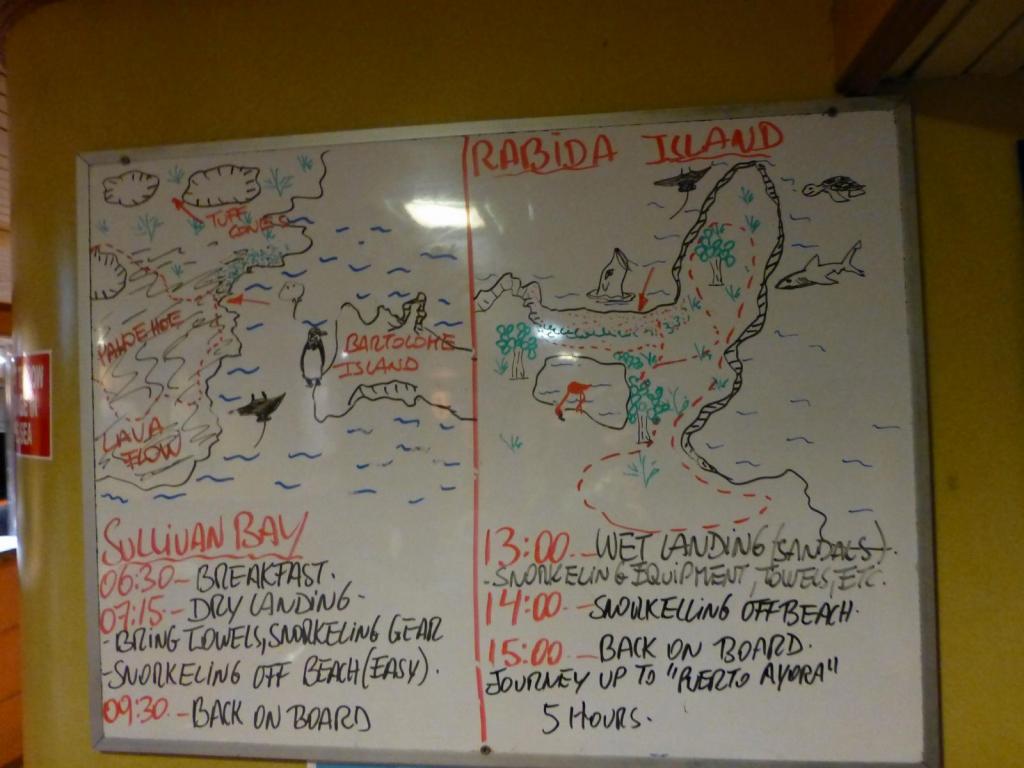 TUFF CONES
PAHOEHOE
LAVA
FLOW
BARTOLOME
ISLAND
SULLIVAN BAY
06:30 - BREAKFAST.
07:15 - DRY LANDING -
- BRING TOWELS, SNORKELING GEAR
- SNORKELING OFF BEACH (EASY).
09:30. - BACK ON BOARD
RABIDA ISLAND
13:00. - WET LANDING (SANDALS).
- SNORKELING EQUIPMENT, TOWELS, ETC.
14:00 - SNORKELLING OFF BEACH.
15:00 - BACK ON BOARD.
JOURNEY UP TO "PUERTO AYORA"
5 HOURS.